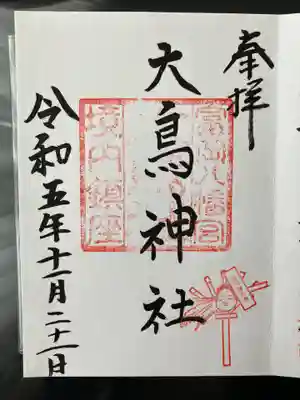 奉拝
大鳥神社
令和五年十一月二十一日
境内鎮座